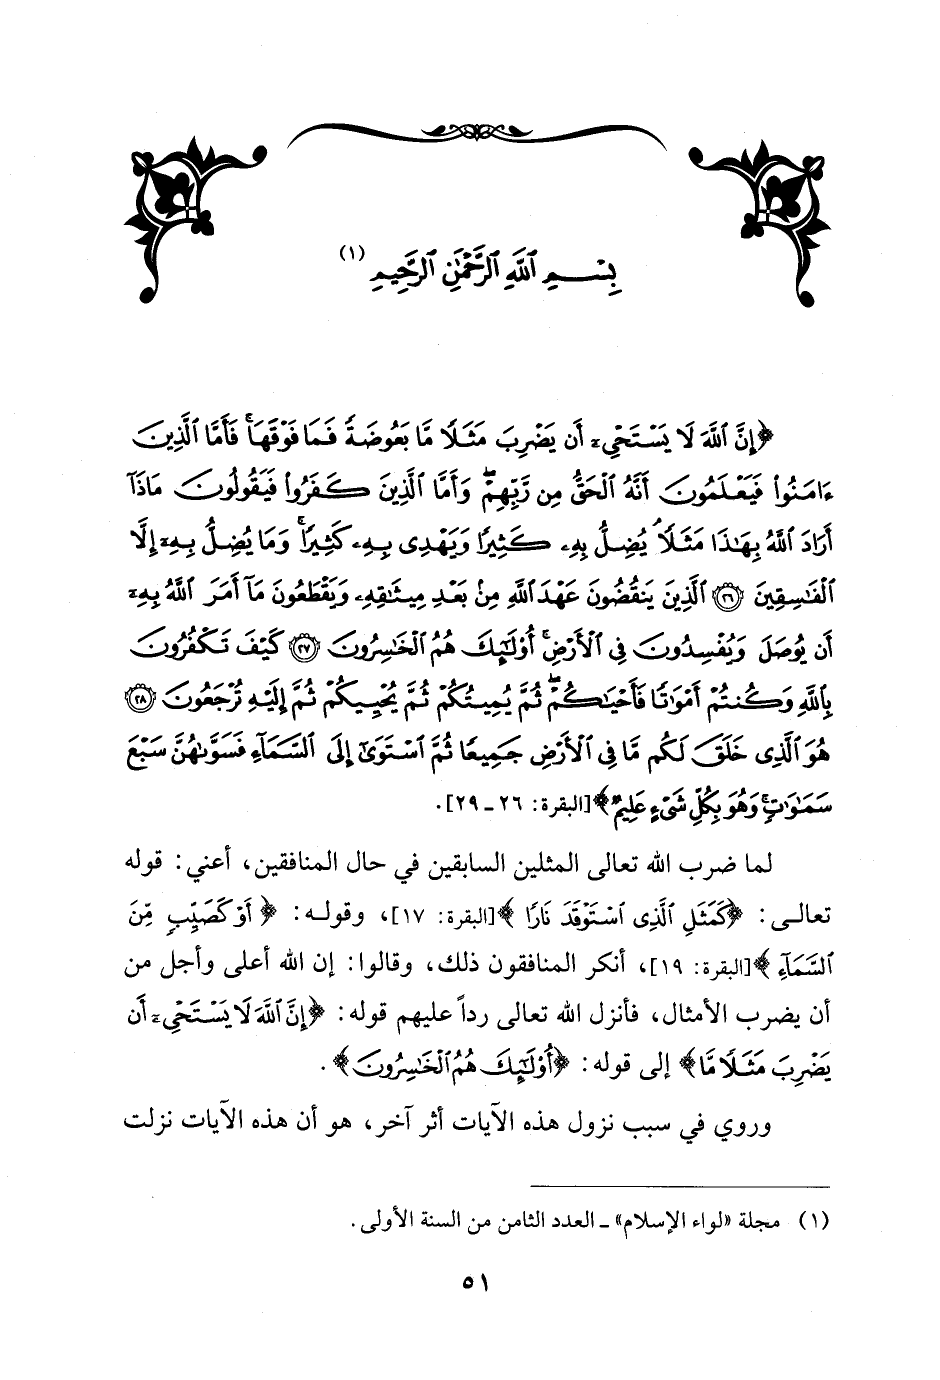 بِسْمِ اللَّهِ الرَّحْمَٰنِ الرَّحِيمِ (١)
﴿إِنَّ اللَّهَ لَا يَسْتَحْيِۦٓ أَن يَضْرِبَ مَثَلًا مَّا بَعُوضَةً فَمَا فَوْقَهَا ۚ فَأَمَّا الَّذِينَ
ءَامَنُوا فَيَعْلَمُونَ أَنَّهُ الْحَقُّ مِن رَّبِّهِمْ ۖ وَأَمَّا الَّذِينَ كَفَرُوا فَيَقُولُونَ مَاذَآ
أَرَادَ اللَّهُ بِهَٰذَا مَثَلًا ۘ يُضِلُّ بِهِۦ كَثِيرًا وَيَهْدِى بِهِۦ كَثِيرًا ۚ وَمَا يُضِلُّ بِهِۦٓ إِلَّا
الْفَٰسِقِينَ ۝٢٦ الَّذِينَ يَنقُضُونَ عَهْدَ اللَّهِ مِنۢ بَعْدِ مِيثَٰقِهِۦ وَيَقْطَعُونَ مَآ أَمَرَ اللَّهُ بِهِۦٓ
أَن يُوصَلَ وَيُفْسِدُونَ فِى الْأَرْضِ ۚ أُوْلَٰٓئِكَ هُمُ الْخَٰسِرُونَ ۝٢٧ كَيْفَ تَكْفُرُونَ
بِاللَّهِ وَكُنتُمْ أَمْوَٰتًا فَأَحْيَٰكُمْ ۖ ثُمَّ يُمِيتُكُمْ ثُمَّ يُحْيِيكُمْ ثُمَّ إِلَيْهِ تُرْجَعُونَ ۝٢٨
هُوَ الَّذِى خَلَقَ لَكُم مَّا فِى الْأَرْضِ جَمِيعًا ثُمَّ اسْتَوَىٰٓ إِلَى السَّمَآءِ فَسَوَّىٰهُنَّ سَبْعَ
سَمَٰوَٰتٍ ۚ وَهُوَ بِكُلِّ شَىْءٍ عَلِيمٌ﴾ [البقرة: ٢٦ ـ ٢٩].
لما ضرب الله تعالى المثلين السابقين في حال المنافقين، أعني: قوله
تعالى: ﴿كَمَثَلِ الَّذِى اسْتَوْقَدَ نَارًا﴾ [البقرة: ١٧]، وقوله: ﴿أَوْ كَصَيِّبٍ مِّنَ
السَّمَآءِ﴾ [البقرة: ١٩]، أنكر المنافقون ذلك، وقالوا: إن الله أعلى وأجل من
أن يضرب الأمثال، فأنزل الله تعالى رداً عليهم قوله: ﴿إِنَّ اللَّهَ لَا يَسْتَحْيِۦٓ أَن
يَضْرِبَ مَثَلًا مَّا﴾ إلى قوله: ﴿أُوْلَٰٓئِكَ هُمُ الْخَٰسِرُونَ﴾.
وروي في سبب نزول هذه الآيات أثر آخر، هو أن هذه الآيات نزلت
(١) مجلة «لواء الإسلام» ـ العدد الثامن من السنة الأولى.
٥١